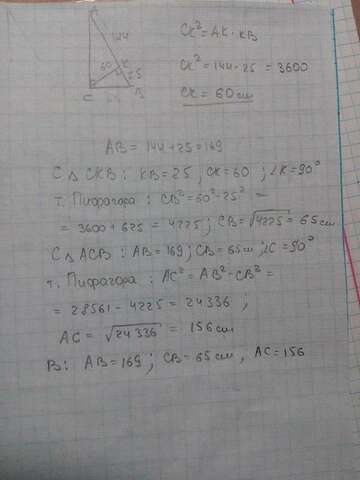 144
60
K
25
C
B
CK² = AK · KB
CK² = 144 · 25 = 3600
CK = 60 см
AB = 144 + 25 = 169
С △ CKB : KB = 25 ; CK = 60 ; ∠K = 90°
т. Пифагора : CB² = 60² - 25² =
= 3600 + 625 = 4225 ; CB = √4225 = 65 см
С △ ACB : AB = 169 ; CB = 65 см ; ∠C = 90°
т. Пифагора : AC² = AB² - CB² =
= 28561 - 4225 = 24336 ;
AC = √24336 = 156 см
В : AB = 169 ; CB = 65 см , AC = 156